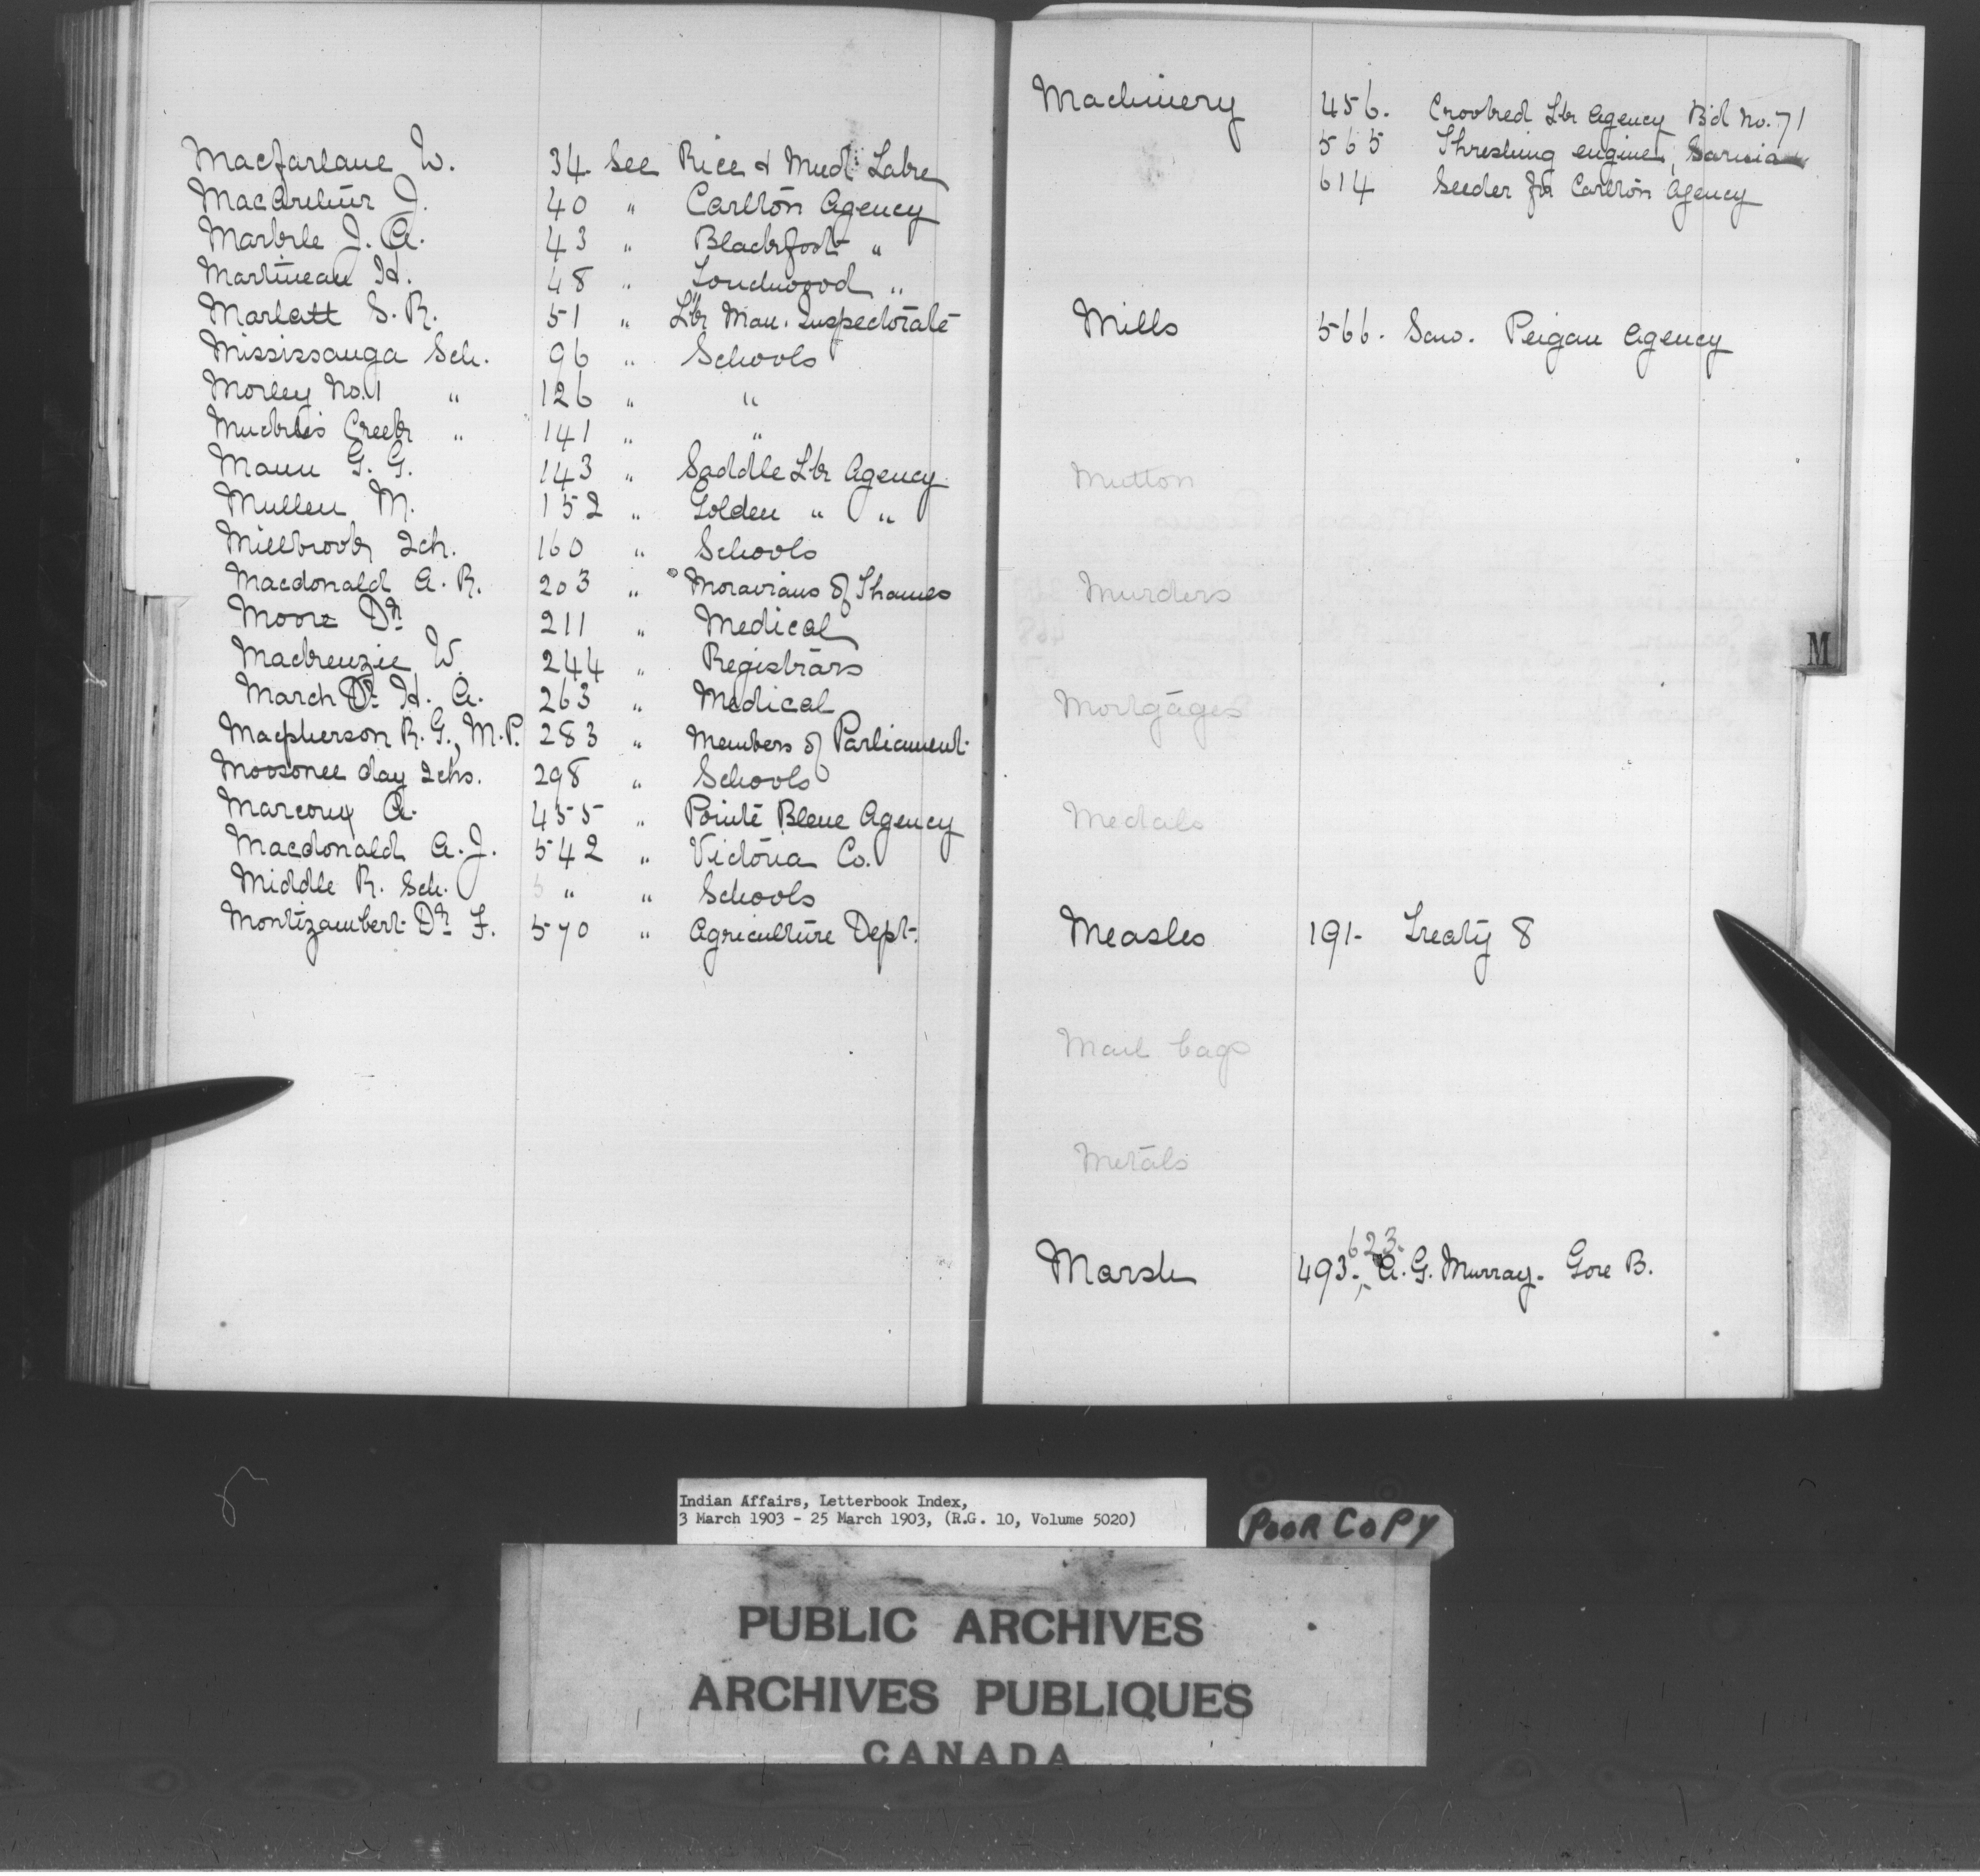 Macfarlane W. 34 See Rice & Mud Lake
MacArthur J. 40 " Carlton Agency
Markle J. A. 43 " Blackfoot "
Martineau H. 48 " Touchwood "
Marlatt S. R. 51 " Lk Man. Inspectorate
Mississauga Sch. 96 " Schools
Morley No. 1 " 126 " "
Muckles Creek " 141 " "
Mann G. G. 143 " Saddle Lk Agency
Mullen M. 152 " Golden " "
Millbrook Sch. 160 " Schools
Macdonald A. R. 203 " Moravians of Thames
Moore Dr 211 " Medical
Mackenzie W. 244 " Registrars
March Dr H. A. 263 " Medical
Macpherson R. G., M.P. 283 " Members of Parliament
Moosonee day Schs. 298 " Schools
Marcoux A. 455 " Pointe Bleue Agency
Macdonald A. J. 542 " Victoria Co.
Middle R. Sch. " " Schools
Montizambert Dr F. 570 " Agriculture Dept.
Machinery 456. Crooked Lk Agency Bd No. 71
565 Threshing engine, Sarnia
614 Seeder for Carlton Agency
Mills 566. Saw. Peigan Agency
Mutton
Murders
M
Mortgages
Medals
Measles 191- Treaty 8
Mail bags
Metals
623.
Marsh 493-, A. G. Murray. Gore B.
Indian Affairs, Letterbook Index,
3 March 1903 - 25 March 1903, (R.G. 10, Volume 5020)
POOR COPY
PUBLIC ARCHIVES
ARCHIVES PUBLIQUES
CANADA